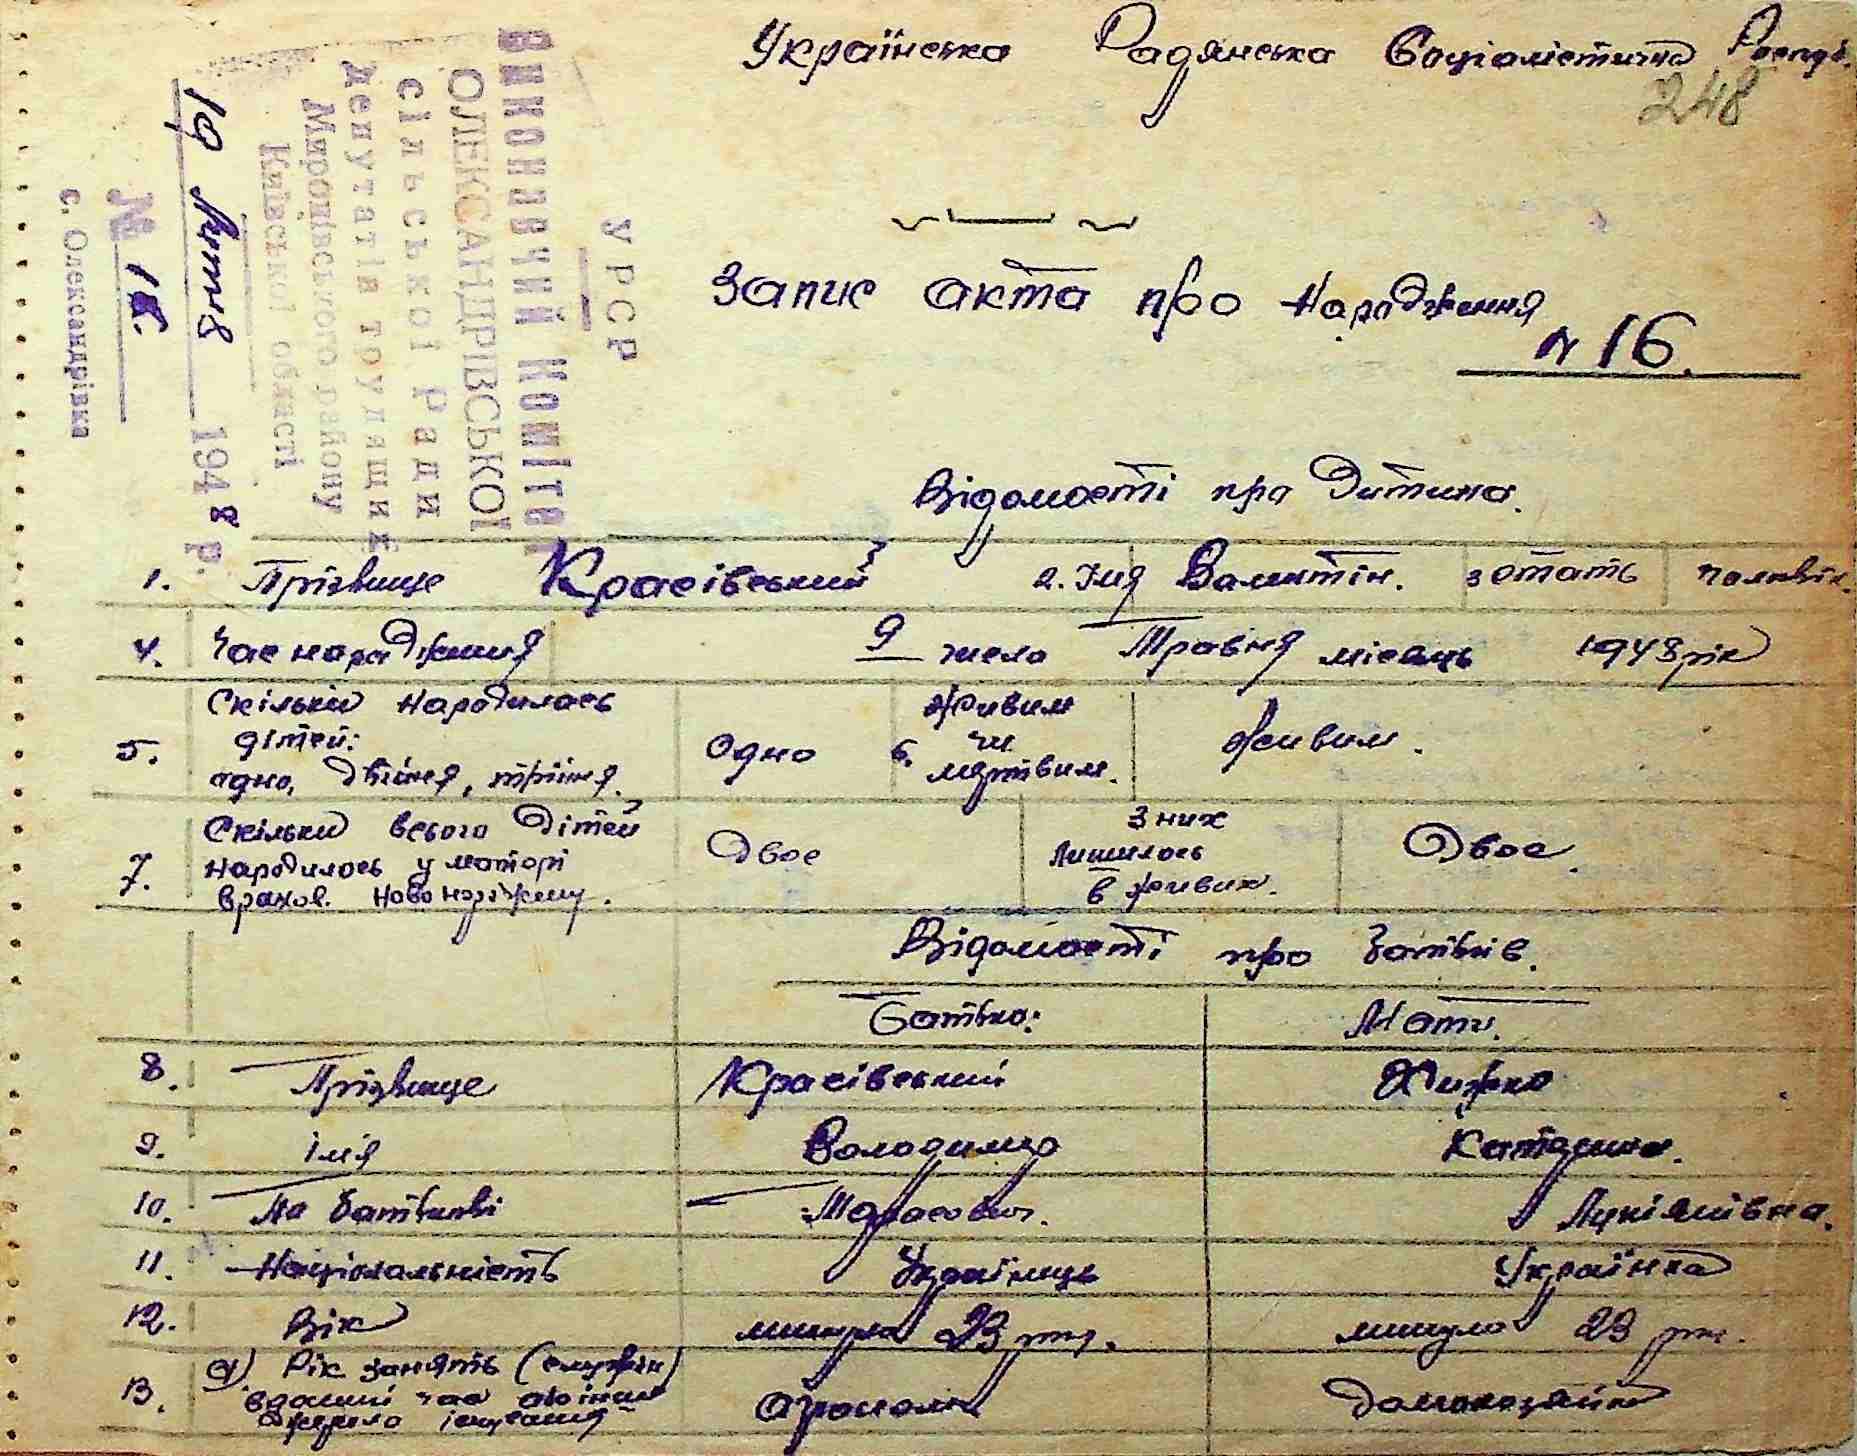 Українська Радянська Соціалістична Респуб.
248
УРСР
Виконавчий Комітет
ОЛЕКСАНДРІВСЬКОЇ
сільської Ради
депутатів трудящих
Миронівського району
Київської області
19 Липня 1948 р.
№ 15.
с. Олександрівка
Запис акта про народження
№ 16.
Відомості про Дитину.
1. Прізвище Красівський 2. Імя Валентін. 3 стать чоловіч.
4. Час народження 9 числа Травня місяць 1948 рік
5. Скільки народилось дітей: одно, двійня, трійня. Одно 6. Живим чи мертвим. Живим.
7. Скільки всього дітей народилось у матері врахов. новонароджену. Двоє З них лишилось в живих. Двоє.
Відомості про батьків.
Батько: Мати.
8. Прізвище Красівський Хижко
9. імя Володимир Катерина.
10. По батькові Тарасович. Лукіянівна.
11. Національність Українець Українка
12. Вік минуло 23 рік. минуло 23 рік.
13. а) Рік занять (службы) в даний час або інше джерело існування агроном домохозяйка